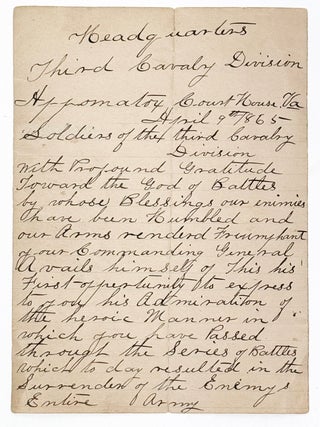 Headquarters
Third Cavalry Division
Appomatox Court House Va
April 9th 1865
Soldiers of the third Cavalry
Division
With Profound Gratitude
Toward the God of Battles
by whose Blessings our enimies
have been Humbled and
our Arms renderd Triumphant
your Commanding General
Avails himself of This his
First opertunity to express
to you his Admiration of
the heroic Manner in
which you have Passed
through the Series of Battles
which to day resulted in the
Surrender of the Enemys
Entire Army